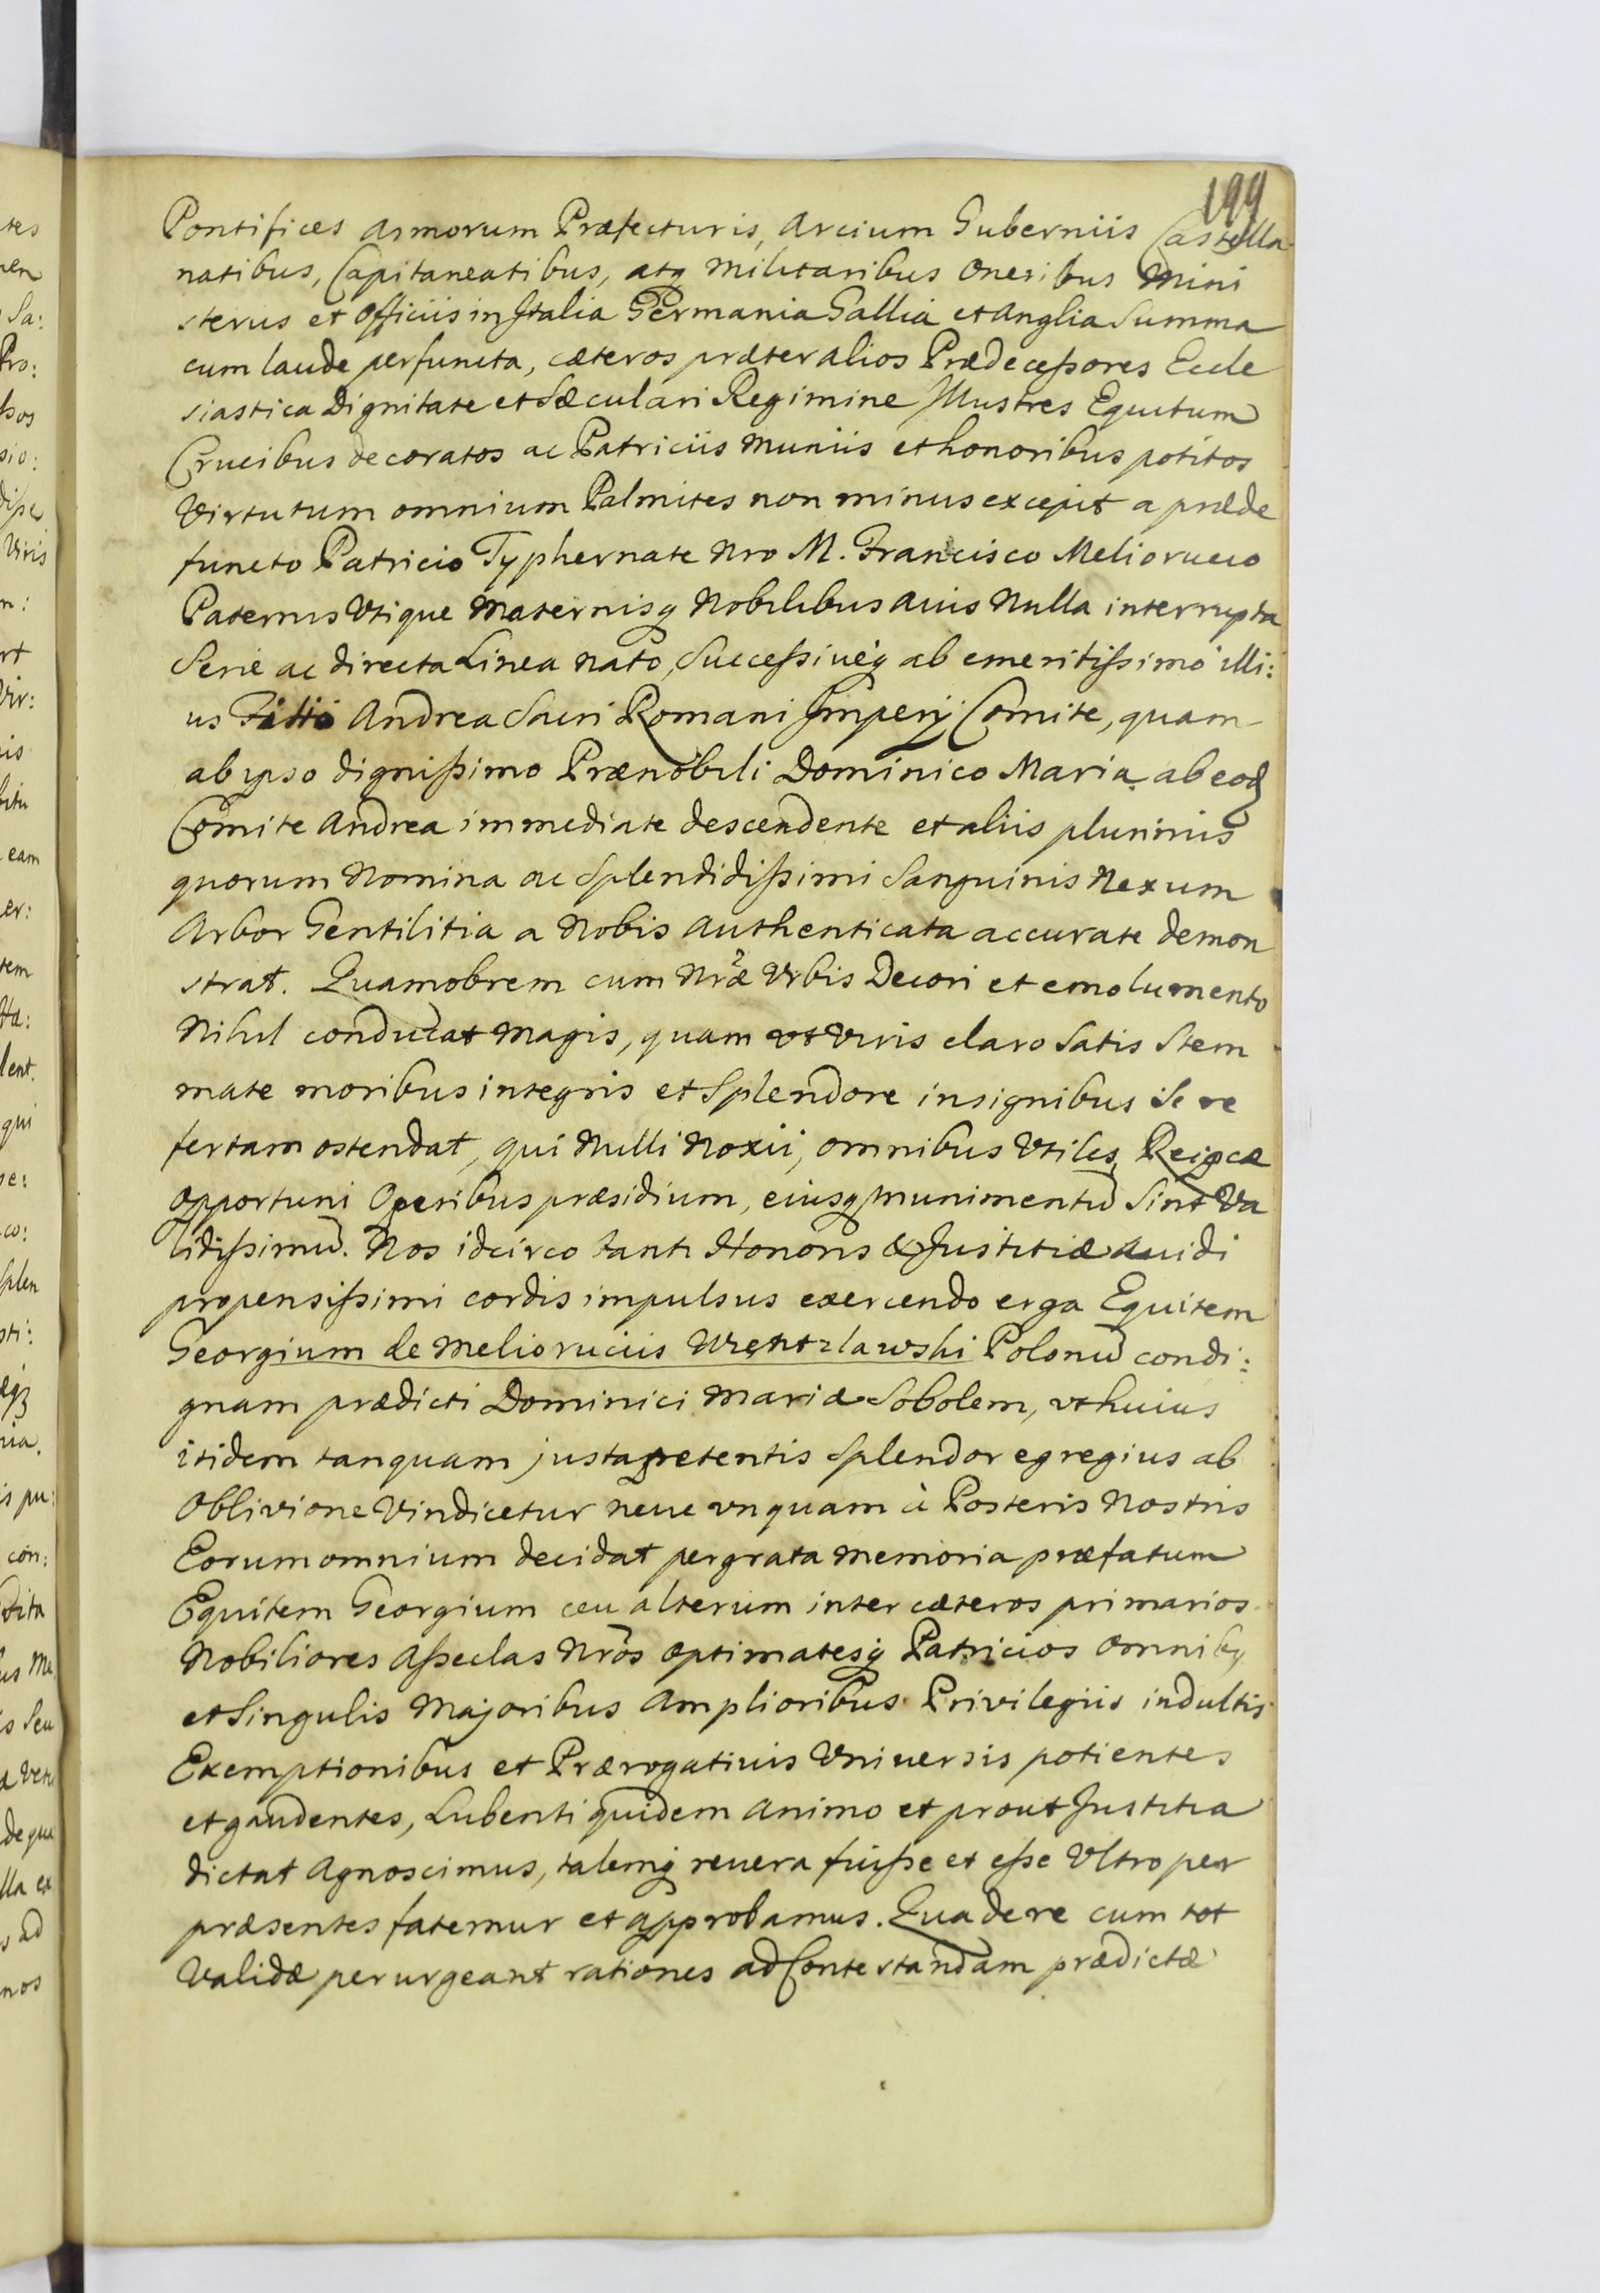 199
Pontifices Armorum Præfecturis, Arcium Guberniis Castella
natibus, Capitaneatibus, atq Militaribus Oneribus Mini
sterijs et Officiis in Italia Germania Gallia et Anglia Summa
cum laude perfuncta, cæteros præter alios Prædeceßores Eccle
siastica Dignitate et Sæculari Regimine Illustres Equitum
Crucibus decoratos ac Patriciis Muniis et honoribus potitos
Virtutum omnium Palmites non minus excepit a præde
functo Patricio Typhernate Nro M. Francisco Meliorucio
Paternis Vtique Maternisq Nobilibus Auis Nulla interrupta
Serie ac directa Linea Nato, Succeßiueq ab emeritißimo illi:
us Filio Andrea Sacri Romani Imperij Comite, quam
ab ipso dignißimo Prænobili Dominico Maria ab eod
Comite Andrea immediate descendente et aliis plurimis
quorum Nomina ac Splendidißimi Sanguinis Nexum
Arbor Gentilitia a Nobis Authenticata accurate demon
strat. Quamobrem cum Nræ Vrbis Decori et emolumento
Nihil conducat Magis, quam vt Viris claro Satis Stem
mate moribus integris et Splendore insignibus Se re
fertam ostendat, qui Nulli Noxii, omnibus Vtiles, Reipcæ
Opportuni Operibus præsidium, eiusq Munimentū Sint Va
lidißimū. Nos idcirco tanti Honoris & Justitiæ Auidi
propensißimi cordis impulsus exercendo erga Equitem
Georgium de Meliorucius Wrentzlawski Polonū condi:
gnam prædicti Dominici Mariæ Sobolem, vt huius
itidem tanquam justa petentis Splendor egregius ab
Oblivione Vindicetur neue vnquam à Posteris Nostris
Eorum omnium decidat pergrata Memoria præfatum
Equitem Georgium ceu alterum inter cæteros primarios
Nobiliores Aßeclas Nros Optimatesq Patricios Omnibq
et Singulis Majoribus Amplioribus Privilegiis indultis
Exemptionibus et Prærogatiuis Vniuersis potientes
et gaudentes, Lubenti quidem Animo et prout Justitia
dictat Agnoscimus, talemq reuera fuiße et eße Vltro per
præsentes fatemur et approbamus. Qua de re cum tot
Validæ perurgeant rationes ad Contestandam prædictæ